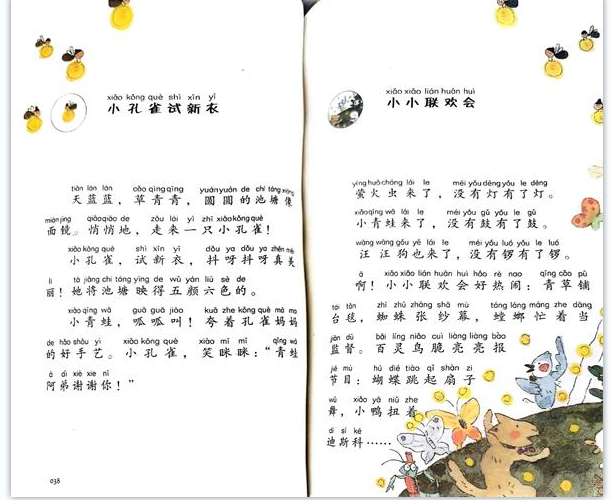 xiǎo kǒng què shì xīn yī
小孔雀试新衣
tiān lán lán cǎo qīng qīng yuán yuán de chí táng xiàng
天蓝蓝，草青青，圆圆的池塘像
miàn jìng qiāo qiāo de zǒu lái yì zhī xiǎo kǒng què
面镜。悄悄地，走来一只小孔雀！
xiǎo kǒng què shì xīn yī dǒu ya dǒu ya zhēn měi
小孔雀，试新衣，抖呀抖呀真美
lì tā jiāng chí táng yìng de wǔ yán liù sè de
丽！她将池塘映得五颜六色的。
xiǎo qīng wā guā guā jiào kuā zhe kǒng què mā ma
小青蛙，呱呱叫！夸着孔雀妈妈
de hǎo shǒu yì xiǎo kǒng què xiào mī mī qīng wā
的好手艺。小孔雀，笑眯眯：“青蛙
ā dì xiè xie nǐ
阿弟谢谢你！”
038
xiǎo xiǎo lián huān huì
小小联欢会
yíng huǒ chóng lái le méi yǒu dēng yǒu le dēng
萤火虫来了，没有灯有了灯。
xiǎo qīng wā lái le méi yǒu gǔ yǒu le gǔ
小青蛙来了，没有鼓有了鼓。
wāng wāng gǒu yě lái le méi yǒu luó yǒu le luó
汪汪狗也来了，没有锣有了锣。
à xiǎo xiǎo lián huān huì hǎo rè nao qīng cǎo pū
啊！小小联欢会好热闹：青草铺
tái tǎn zhī zhū zhāng shā mù táng láng máng zhe dāng
台毯，蜘蛛张纱幕，螳螂忙着当
jiān dū bǎi líng niǎo cuì liàng liàng bào
监督。百灵鸟脆亮亮报
jié mù hú dié tiào qǐ shàn zi
节目：蝴蝶跳起扇子
wǔ xiǎo yā niǔ zhe
舞，小鸭扭着
dí sī kē
迪斯科……